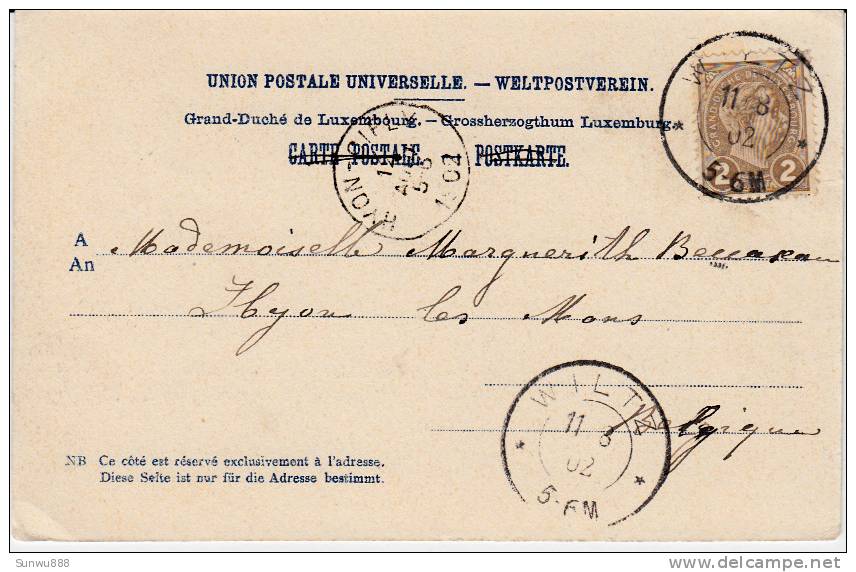 UNION POSTALE UNIVERSELLE. — WELTPOSTVEREIN.
Grand-Duché de Luxembourg. — Grossherzogthum Luxemburg.
CARTE POSTALE POSTKARTE.
WILTZ
11 8
02
5-6M
GRAND DUCHÉ DE LUXEMBOURG
2 2
HYON
1902
A Mademoiselle Marguerith
An
Hyon les Mons
Belgique
WILTZ
11 8
02
5-6M
NB Ce côté est réservé exclusivement à l'adresse.
Diese Seite ist nur für die Adresse bestimmt.
Sunwu888
delcampe.net